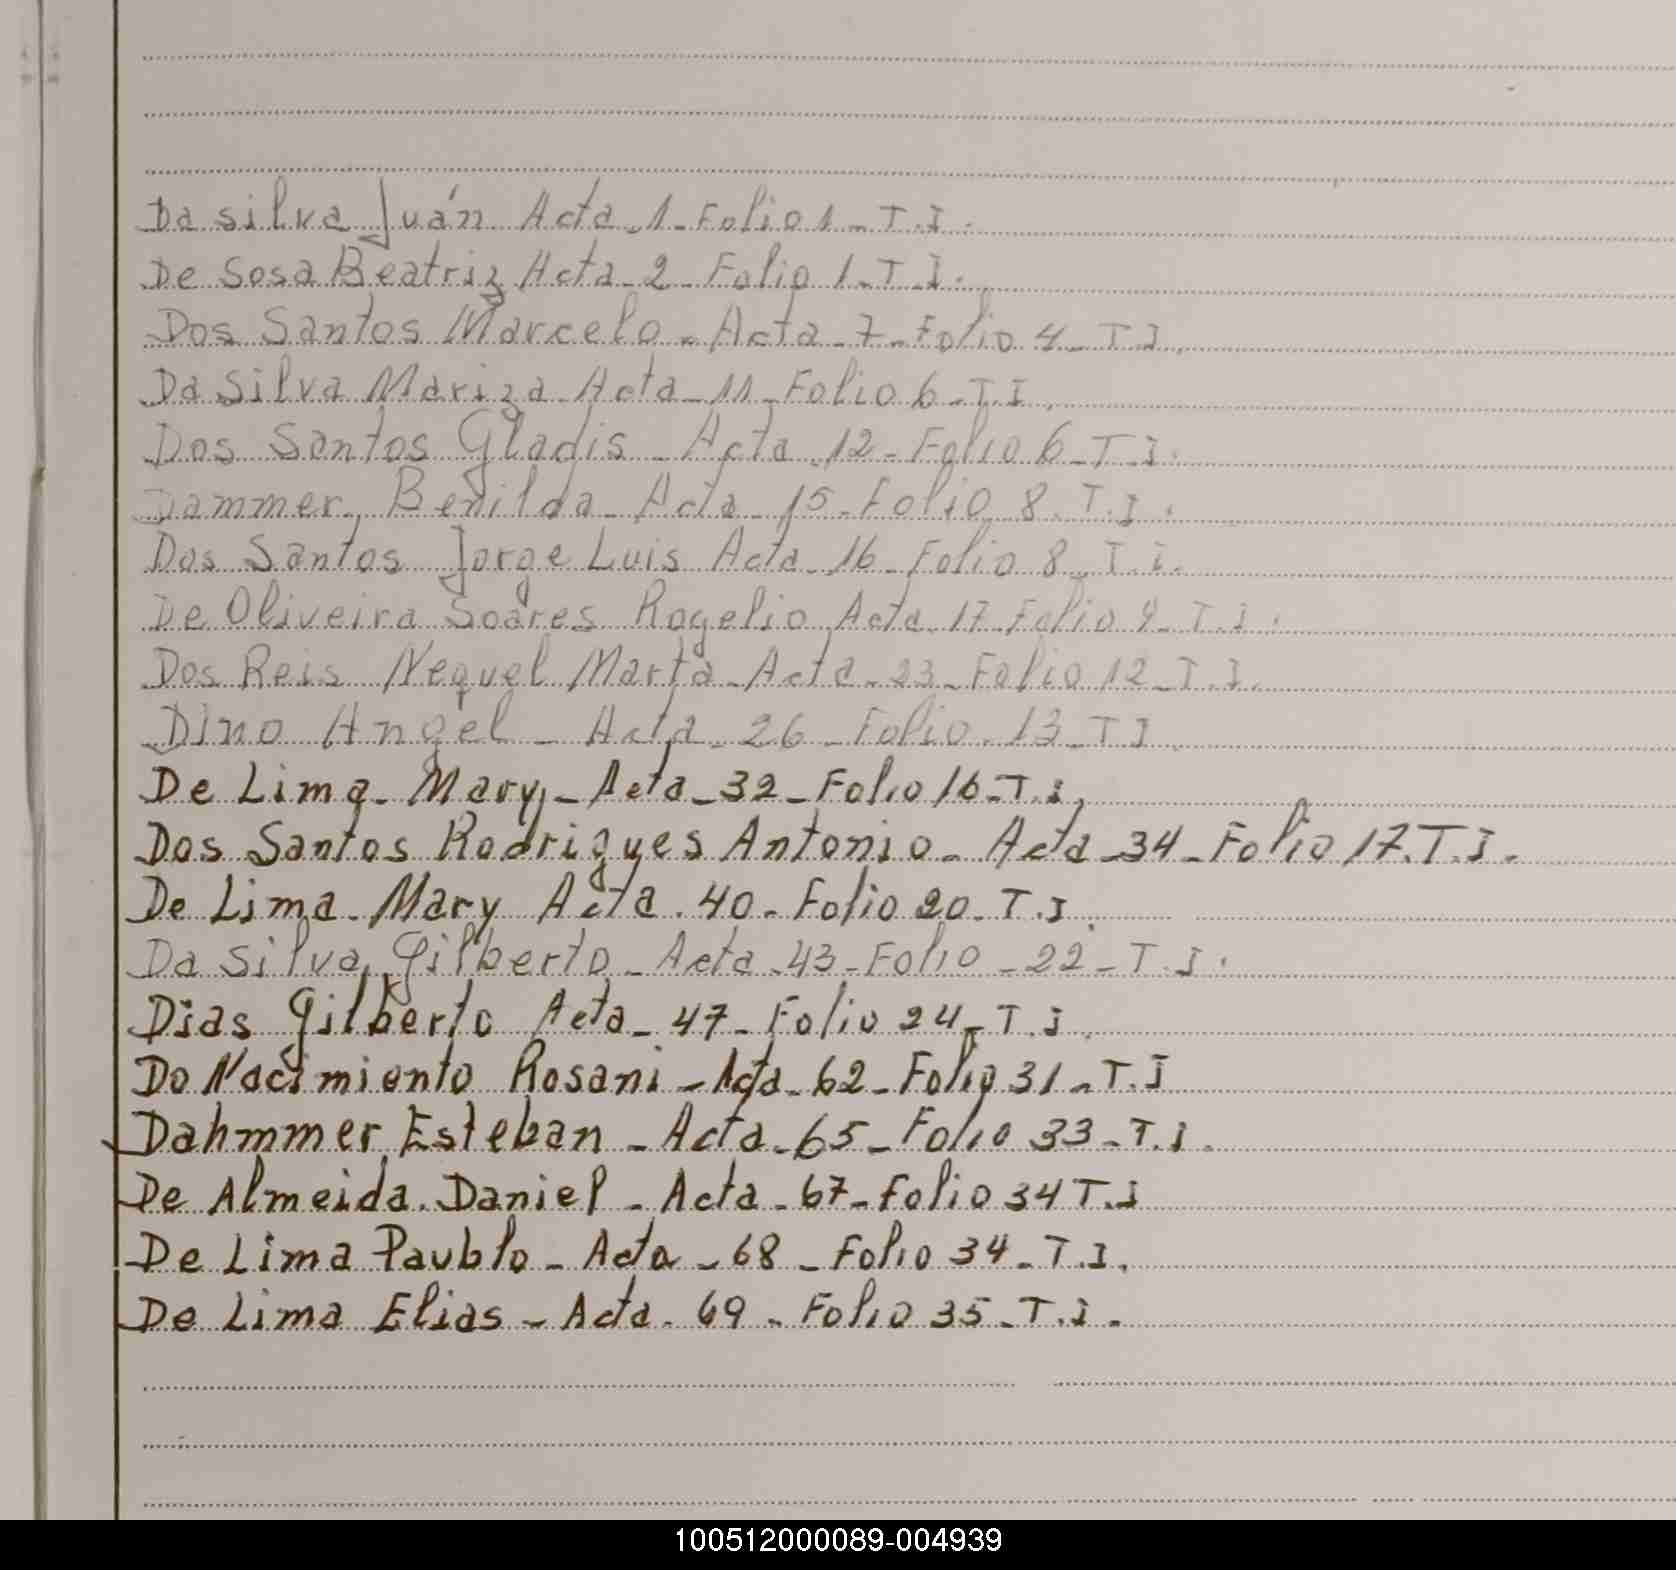 Da silva Juán Acta - 1 - Folio 1 - T.I.
De Sosa Beatriz Acta - 2 - Folio 1 - T.I.
Dos Santos Marcelo - Acta - 7 - Folio 4 - T.I.
Da Silva Mariza Acta - 11 - Folio 6 - T.I.
Dos Santos Gladis - Acta - 12 - Folio 6 - T.I.
Dammer, Benilda - Acta - 15 - Folio 8 - T.I.
Dos Santos Jorge Luis Acta - 16 - Folio 8 - T.I.
De Oliveira Soares Rogelio Acta 17 Folio 9 - T.I.
Dos Reis Nequel Marta - Acta - 23 - Folio 12 - T.I.
Dino Angel - Acta - 26 - Folio - 13 - T I
De Lima - Mary - Acta - 32 - Folio 16 - T.I.
Dos Santos Rodrigues Antonio - Acta - 34 - Folio 17. T.I.
De Lima - Mary Acta . 40 - Folio 20 - T.I.
Da Silva, Gilberto - Acta - 43 - Folio - 22 - T.I.
Dias Gilberto Acta - 47 - Folio 24 - T.I.
Do Nacimiento Rosani - Acta - 62 - Folio 31 - T.I
Dahmmer, Esteban - Acta - 65 - Folio 33 - T.I.
De Almeida. Daniel - Acta - 67 - Folio 34 T.I
De Lima Paublo - Acta - 68 - Folio 34 - T.I.
De Lima Elias - Acta - 69 - Folio 35 - T.I.
100512000089-004939